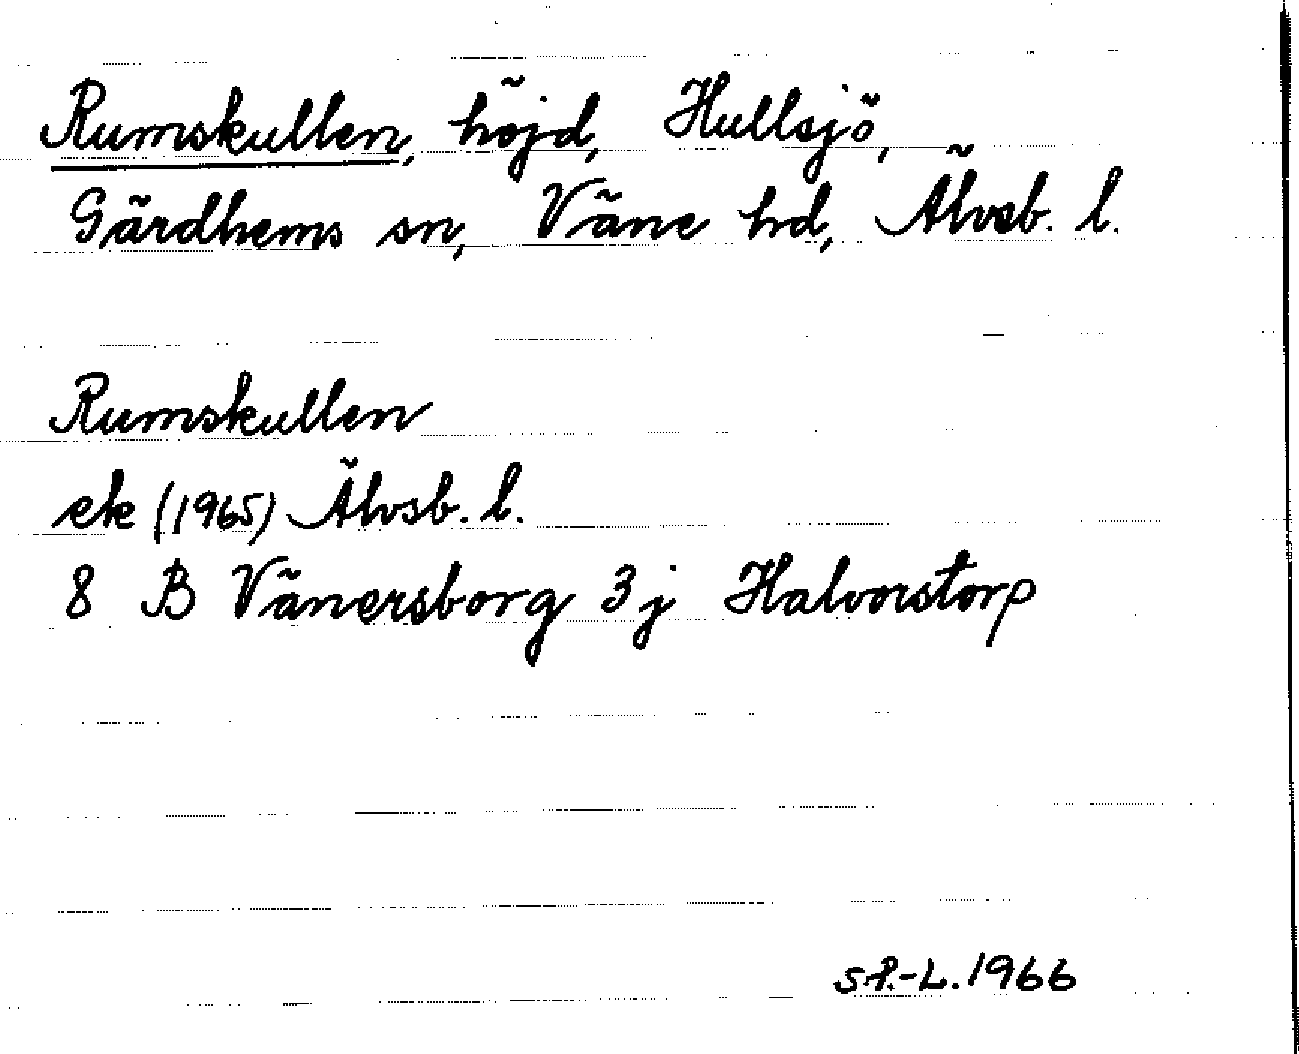 Rumskullen, höjd, Hullsjö,
Gärdhems sn, Väne hd, Älvsb. l.
Rumskullen
ek (1965) Älvsb. l.
8 B Vänersborg 3 j Halvorstorp
S.P.-L. 1966